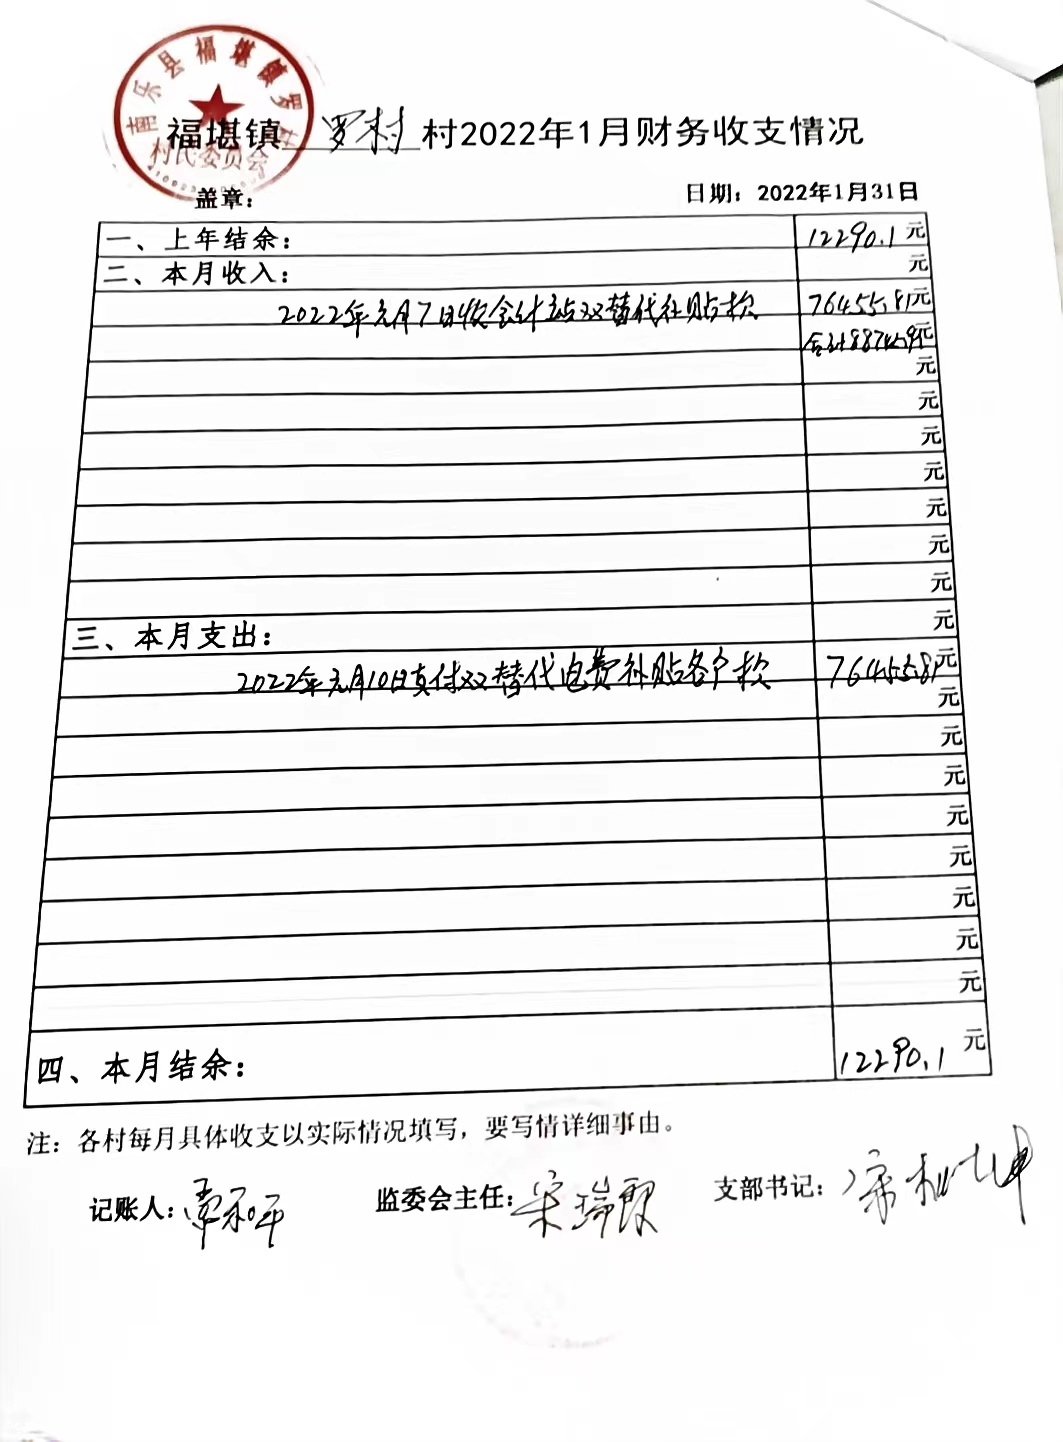 南乐县福堪镇罗村
村民委员会
福堪镇 罗村 村2022年1月财务收支情况
盖章： 日期：2022年1月31日
一、上年结余： 12290.1元
二、本月收入： 元
2022年元月7日收会计站双替代补贴款 76455.81元
合计88745.9元
元
元
元
元
元
元
元
三、本月支出： 元
2022年元月10日真付双替代电费补贴各户款 76455.81元
元
元
元
元
元
元
元
元
四、本月结余： 12290.1元
注：各村每月具体收支以实际情况填写，要写情详细事由。
记账人： 监委会主任：宋瑞 支部书记：宋